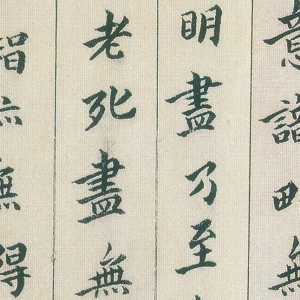 意識界無
明盡乃至
老死盡無
智亦無得